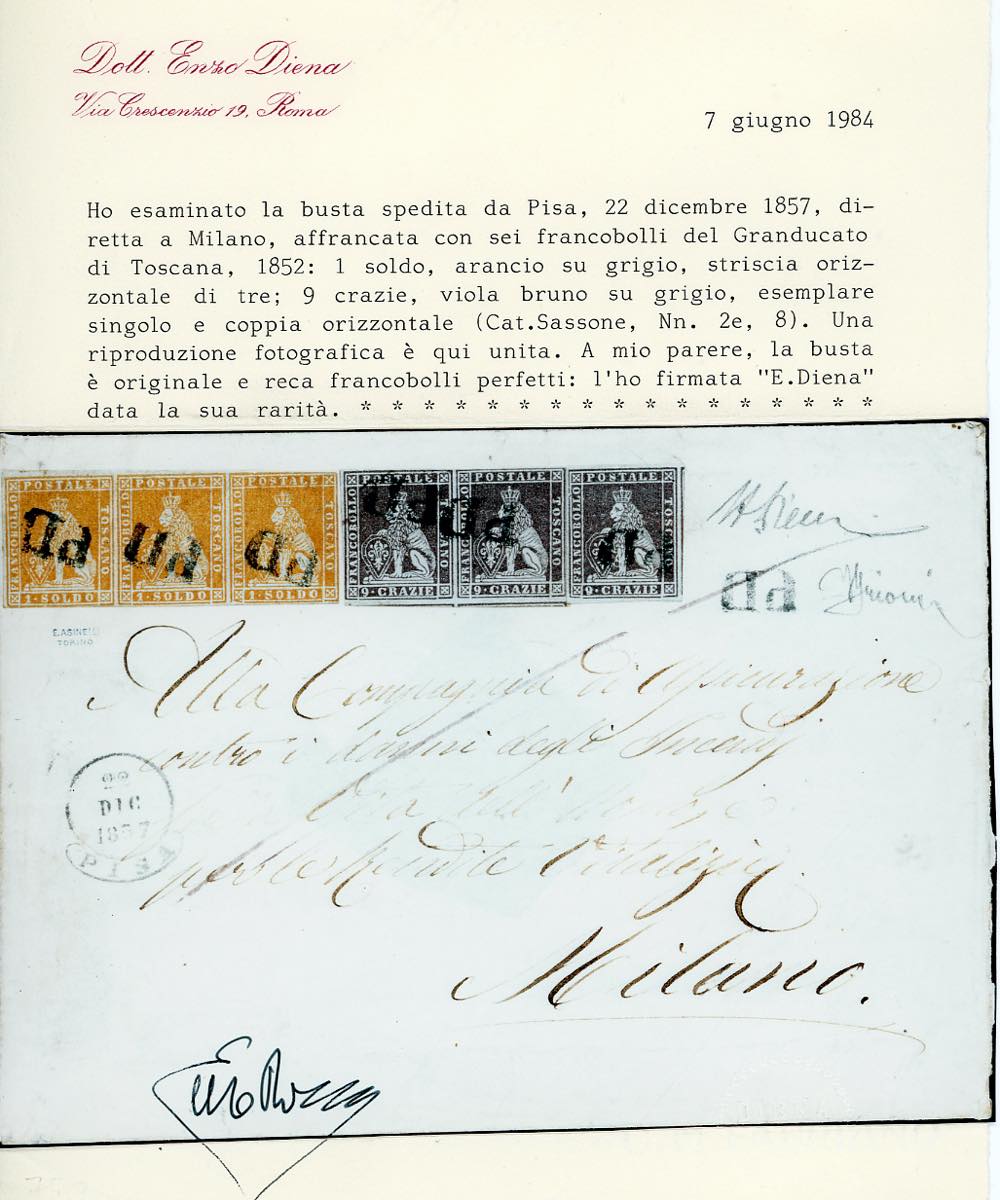 Dott. Enzo Diena
Via Crescenzio 19, Roma
7 giugno 1984
Ho esaminato la busta spedita da Pisa, 22 dicembre 1857, di-
retta a Milano, affrancata con sei francobolli del Granducato
di Toscana, 1852: 1 soldo, arancio su grigio, striscia oriz-
zontale di tre; 9 crazie, viola bruno su grigio, esemplare
singolo e coppia orizzontale (Cat.Sassone, Nn. 2e, 8). Una
riproduzione fotografica è qui unita. A mio parere, la busta
è originale e reca francobolli perfetti: l'ho firmata "E.Diena"
data la sua rarità. * * * * * * * * * * * * * * * * *
FRANCOBOLLO POSTALE TOSCANO 1·SOLDO
FRANCOBOLLO POSTALE TOSCANO 1·SOLDO
FRANCOBOLLO POSTALE TOSCANO 1·SOLDO
FRANCOBOLLO POSTALE TOSCANO 9·CRAZIE
FRANCOBOLLO POSTALE TOSCANO 9·CRAZIE
FRANCOBOLLO POSTALE TOSCANO 9·CRAZIE
PD PD PD PD PD PD
PD
E.ASINELLI
TORINO
Alla Compagnia di Assicurazione
contro i danni degli Incendj
Vita dell'
per le Rendite Vitalizie
Milano.
22
DIC
1857
PISA